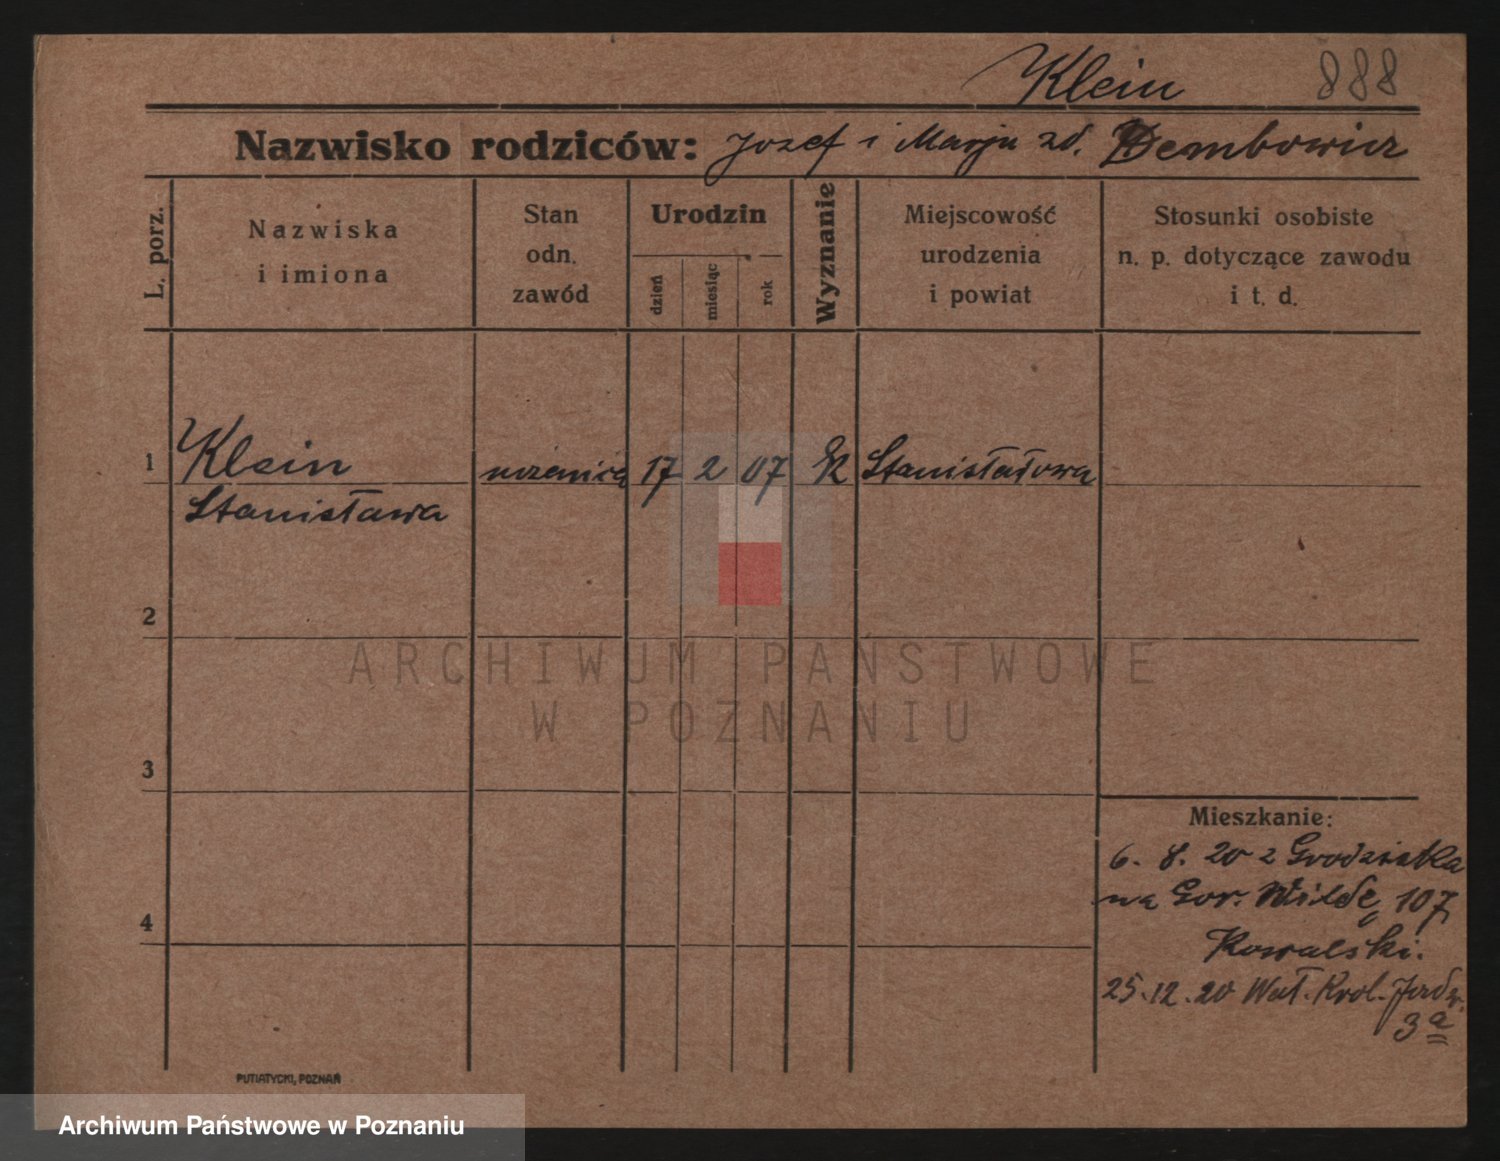 Klein 888
Nazwisko rodziców: Jozef i Marja zd. Dembowicz
L. porz.
Nazwiska
i imiona
Stan
odn.
zawód
Urodzin
dzień
miesiąc
rok
Wyznanie
Miejscowość
urodzenia
i powiat
Stosunki osobiste
n. p. dotyczące zawodu
i t. d.
1 Klein 17 2 07 Stanisławowa
Stanisława
2
3
4
Mieszkanie:
6. 8. 20 z Grodziska
na Gor. Wildę 107
Kowalski.
25.12.20 Wał. Krol. Jadw.
3a
PUTIATYCKI, POZNAŃ
ARCHIWUM PAŃSTWOWE
W POZNANIU
Archiwum Państwowe w Poznaniu